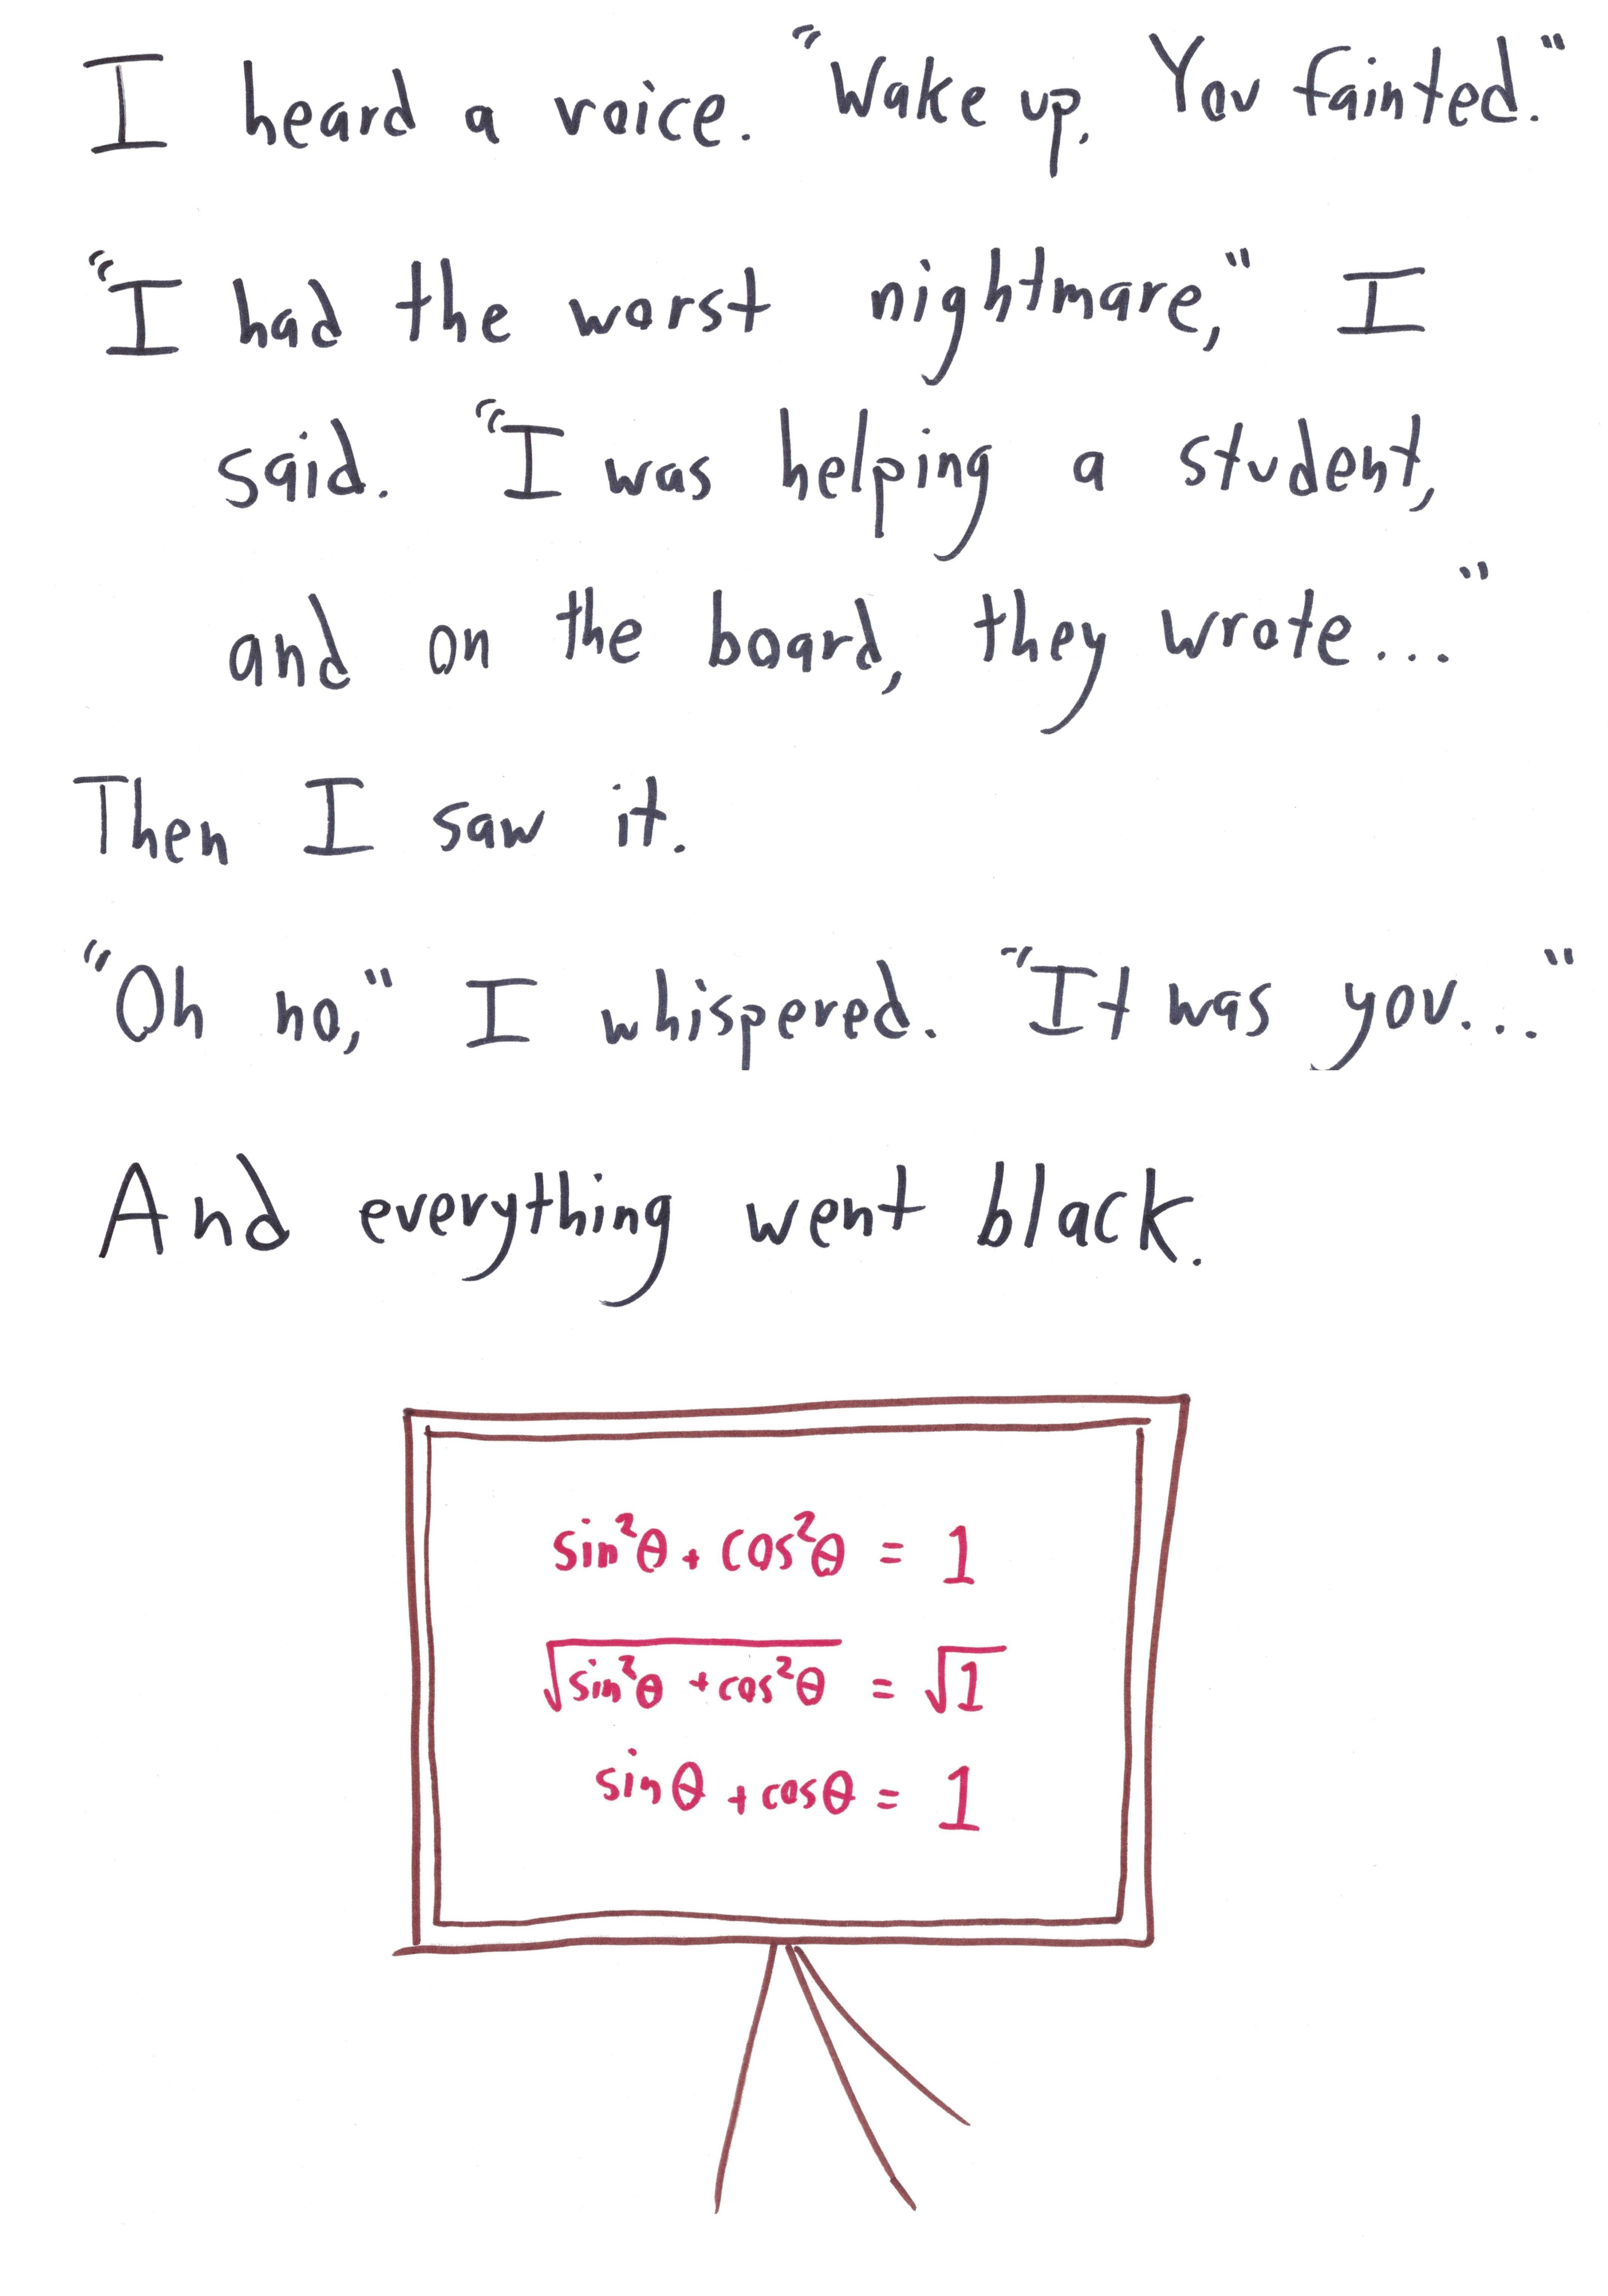 I heard a voice. "Wake up. You fainted."
"I had the worst nightmare," I
said. "I was helping a student,
and on the board, they wrote..."
Then I saw it.
"Oh no," I whispered. "It was you..."
And everything went black.
sin²θ + cos²θ = 1
√sin²θ + cos²θ = √1
sinθ + cosθ = 1